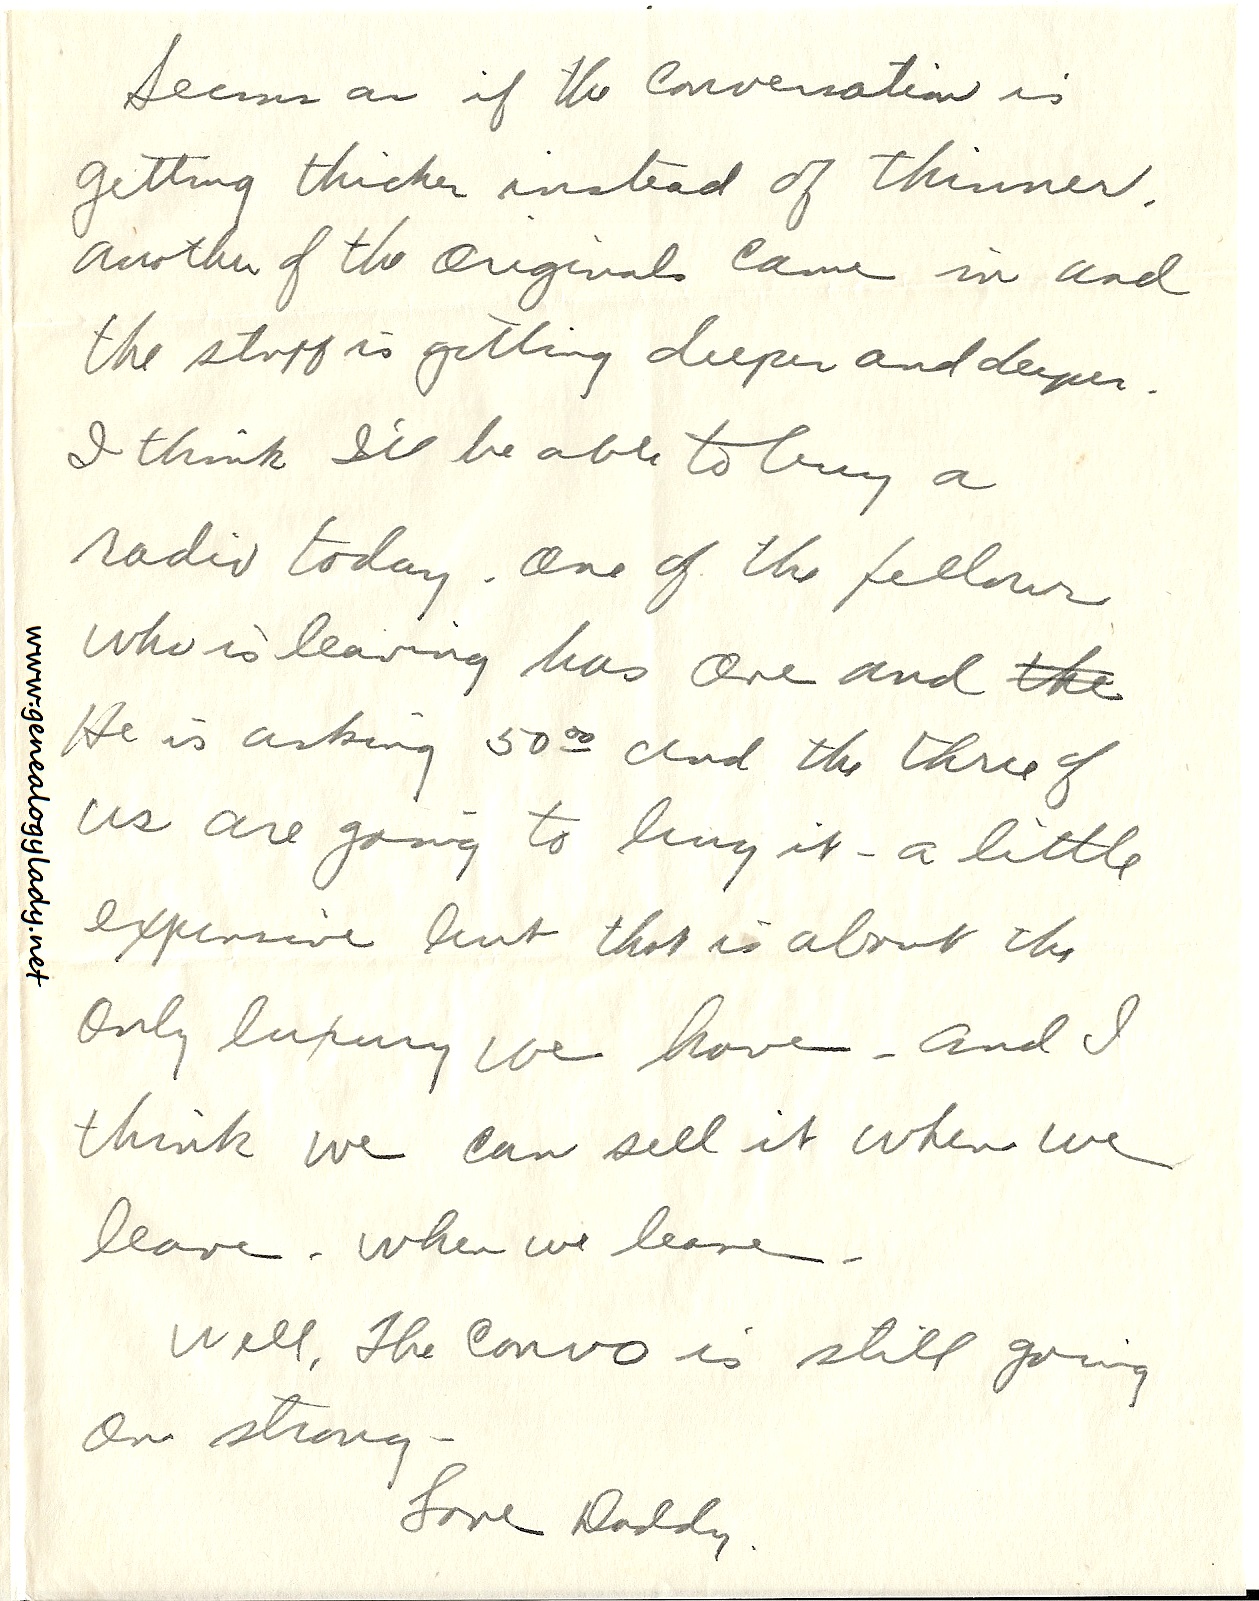 Seems as if the conversation is
getting thicker instead of thinner.
Another of the originals came in and
the stuff is getting deeper and deeper.
I think I'll be able to buy a
radio today. One of the fellows
who is leaving has one and ~~the~~
He is asking 50⁰⁰ and the three of
us are going to buy it - a little
expensive but that is about the
only luxury we have - and I
think we can sell it when we
leave. when we leave -
Well, the convo is still going
on strong -
Love Daddy.
www.genealogylady.net